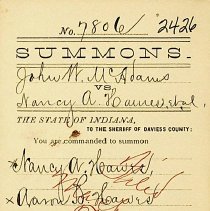 No. 7806/ 2426
SUMMONS.
John W. McAdams
vs.
Nancy A. Hawes, et al.
THE STATE OF INDIANA,
TO THE SHERIFF OF DAVIESS COUNTY:
You are commanded to summon
Nancy A. Hawes,
x Aaron H. Hawes